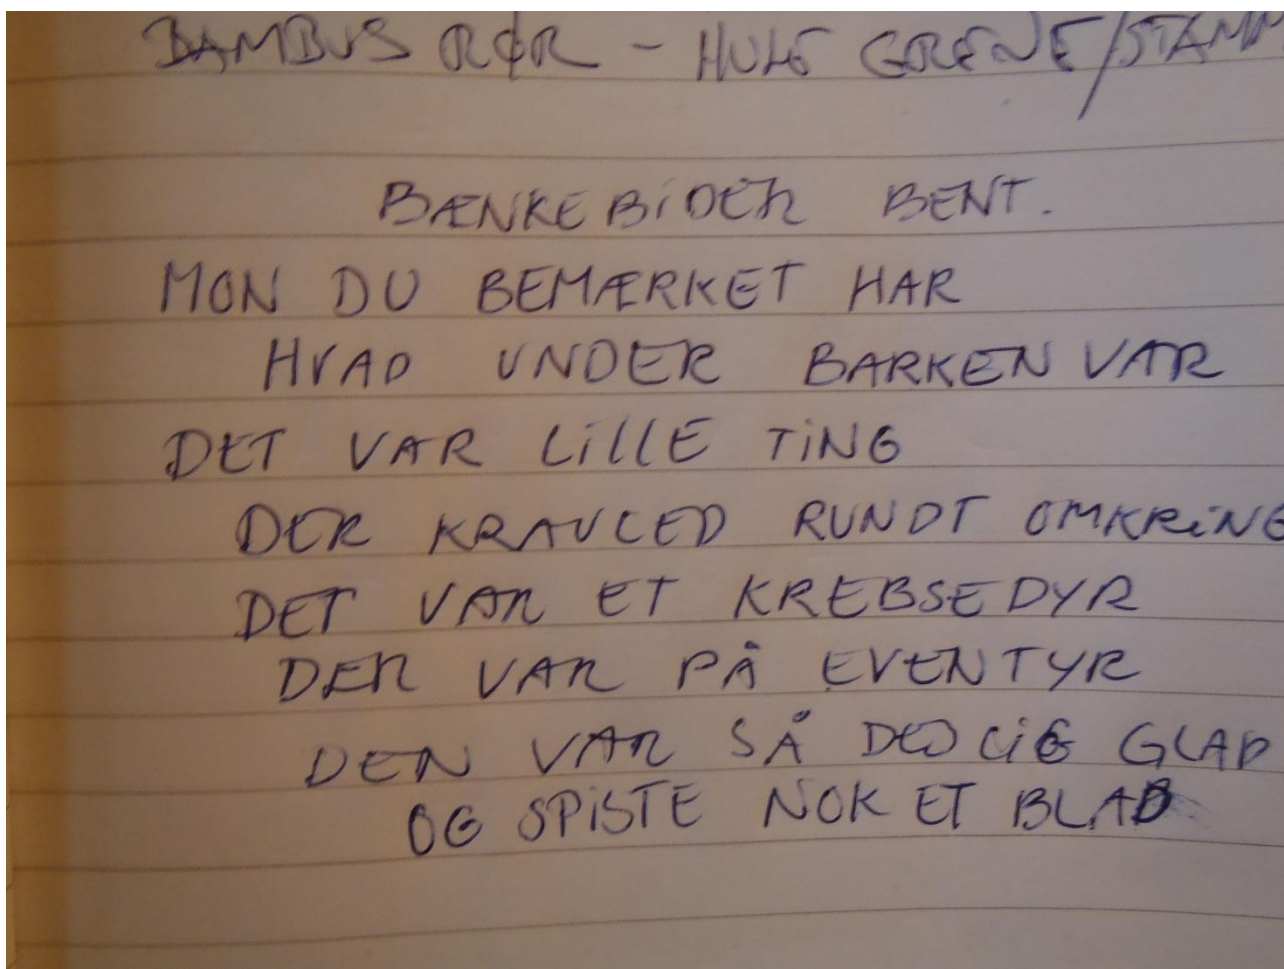 BAMBUS RØR - HULE GRENE/STAMM
BÆNKEBIDER BENT.
MON DU BEMÆRKET HAR
HVAD UNDER BARKEN VAR
DET VAR LILLE TING
DER KRAVLED RUNDT OMKRING
DET VAR ET KREBSEDYR
DER VAR PÅ EVENTYR
DEN VAR SÅ DEJLIG GLAD
OG SPISTE NOK ET BLAD